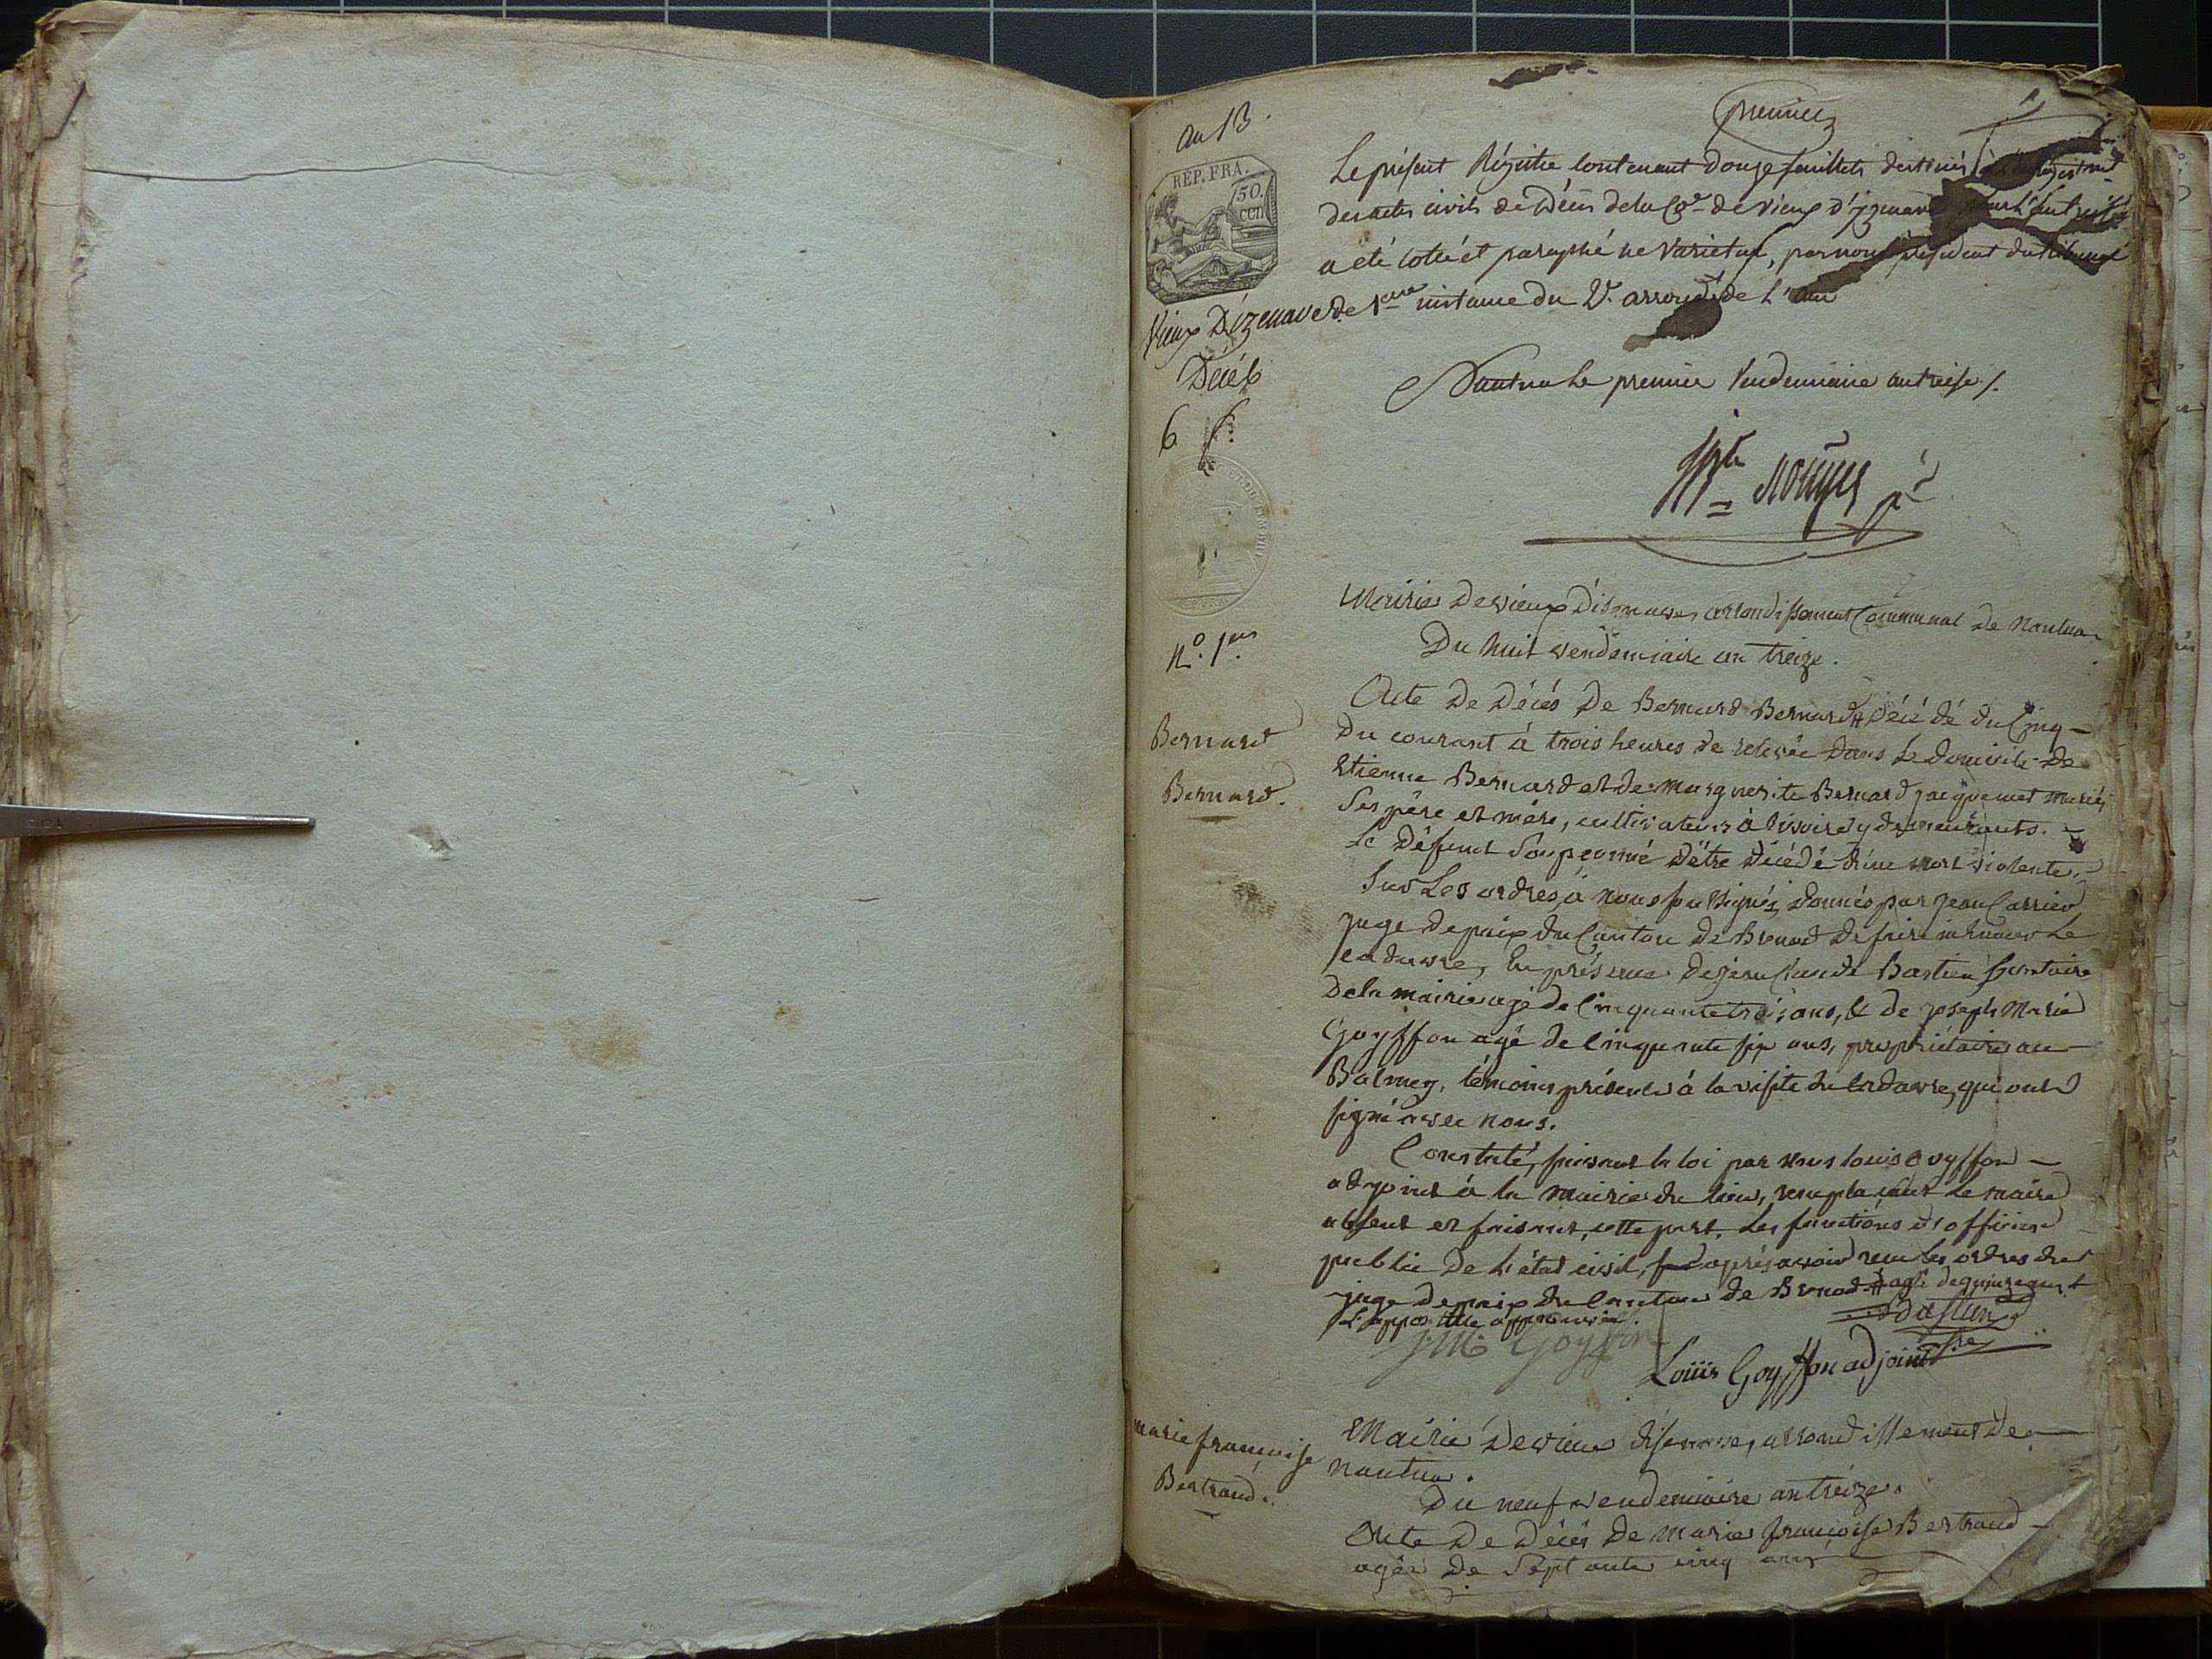 an 13.
premier
REP. FRA.
50.
cen
Le présent Régistre Contenant douze feuillets destinés
des actes civils de Décès de la Cne de Vieux d'yzenave pour l'an treize
a été cotté et paraphé ne Varietur, par nous président du tribunal
de 1ere instance du 2e arrondt de L'ain
Vieux D'izenave
Décès
6 f.
Nantua Le premier Vendemiaire an treize ./.
Mairie de vieux d'isenave, arrondissement Communal de Nantua
Du huit vendémiaire an treize.
N.o 1er
Bernard
Bernard.
Acte de Décès de Bernard Bernard # décédé du Cinq
Du courant à trois heures de relevée dans le domicile de
Etienne Bernard et de marguerite Bernard jacquemet mariés
Ses père et mère, cultivateurs à y demeurants.
Le Défunt Soupçonné d'être décédé d'une mort violente.
Sur Les ordres, à nous soussignés, donnés par jean Carrier
juge de paix du Canton de Brenod de faire inhumer le
cadavre, En présence de jean Claude Bastien secretaire
De la mairie agé de Cinquante trois ans, & de joseph Marie
Goyffon agé de Cinquante six ans, propriétaires au
Balmey, témoins présents à la visite du Cadavre, qui ont
signé avec nous.
Constaté, suivant la loi par nous louis Goyffon
adjoint à la mairie du lieu, remplaçant le maire
absent et faisant, cette part, les fonctions d'officier
public de l'état civil, après avoir reçu les ordres du
juge de paix du Canton de Brenod # agé de quinze ans
L'appostille approuvée.
J.M. Goyffon
Bastien
Louis Goyffon adjoint
marie françoise
Bertrand.
Mairie de vieux d'isenave, arrondissement de
nantua.
Du neuf vendemiaire an treize.
Acte De Décès de marie françoise Bertrand
agée de Septante cinq ans